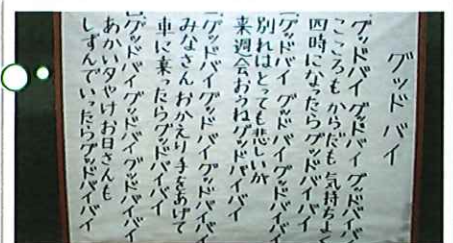 グッド バイ
グッドバイ グッドバイ グッドバイバイ
こころも からだも 気持ちよく
四時になったらグッドバイバイ
グッドバイ グッドバイ グッドバイバイ
別れはとっても悲しいが
来週会おうねグッドバイバイ
グッドバイ グッドバイ グッドバイバイ
みなさん おかえり手をあげて
車に乗ったらグッドバイバイ
グッドバイ グッドバイ グッドバイバイ
あかい夕やけお日さんも
しずんでいったらグッドバイバイ